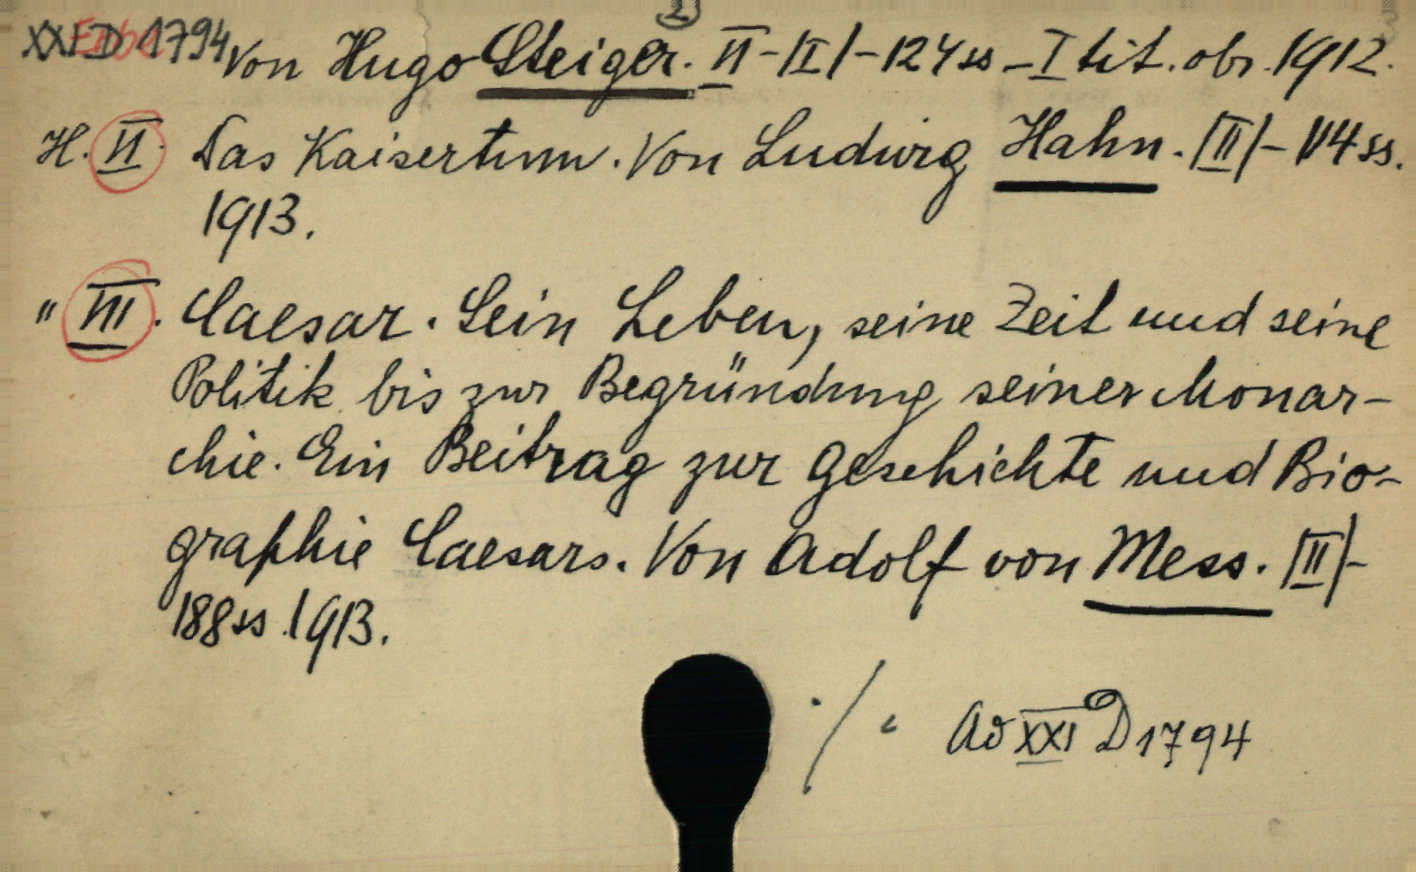 2
XXI D 1794
Von Hugo Steiger. VI-|II|-124ss-I tit. obr. 1912.
H. VI. Das Kaisertum. Von Ludwig Hahn. |II|-114ss.
1913.
" VII. Caesar. Sein Leben, seine Zeit und seine
Politik bis zur Begründung seiner Monar-
chie. Ein Beitrag zur Geschichte und Bio-
graphie Caesars. Von Adolf von Mess. |II|-
188ss. 1913.
./.
Ad XXI D 1794